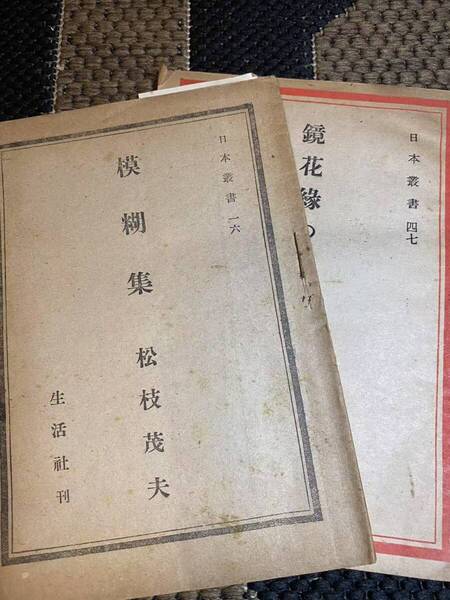 日本叢書 一六
模糊集 松枝茂夫
生活社刊
日本叢書 四七
鏡花緣の